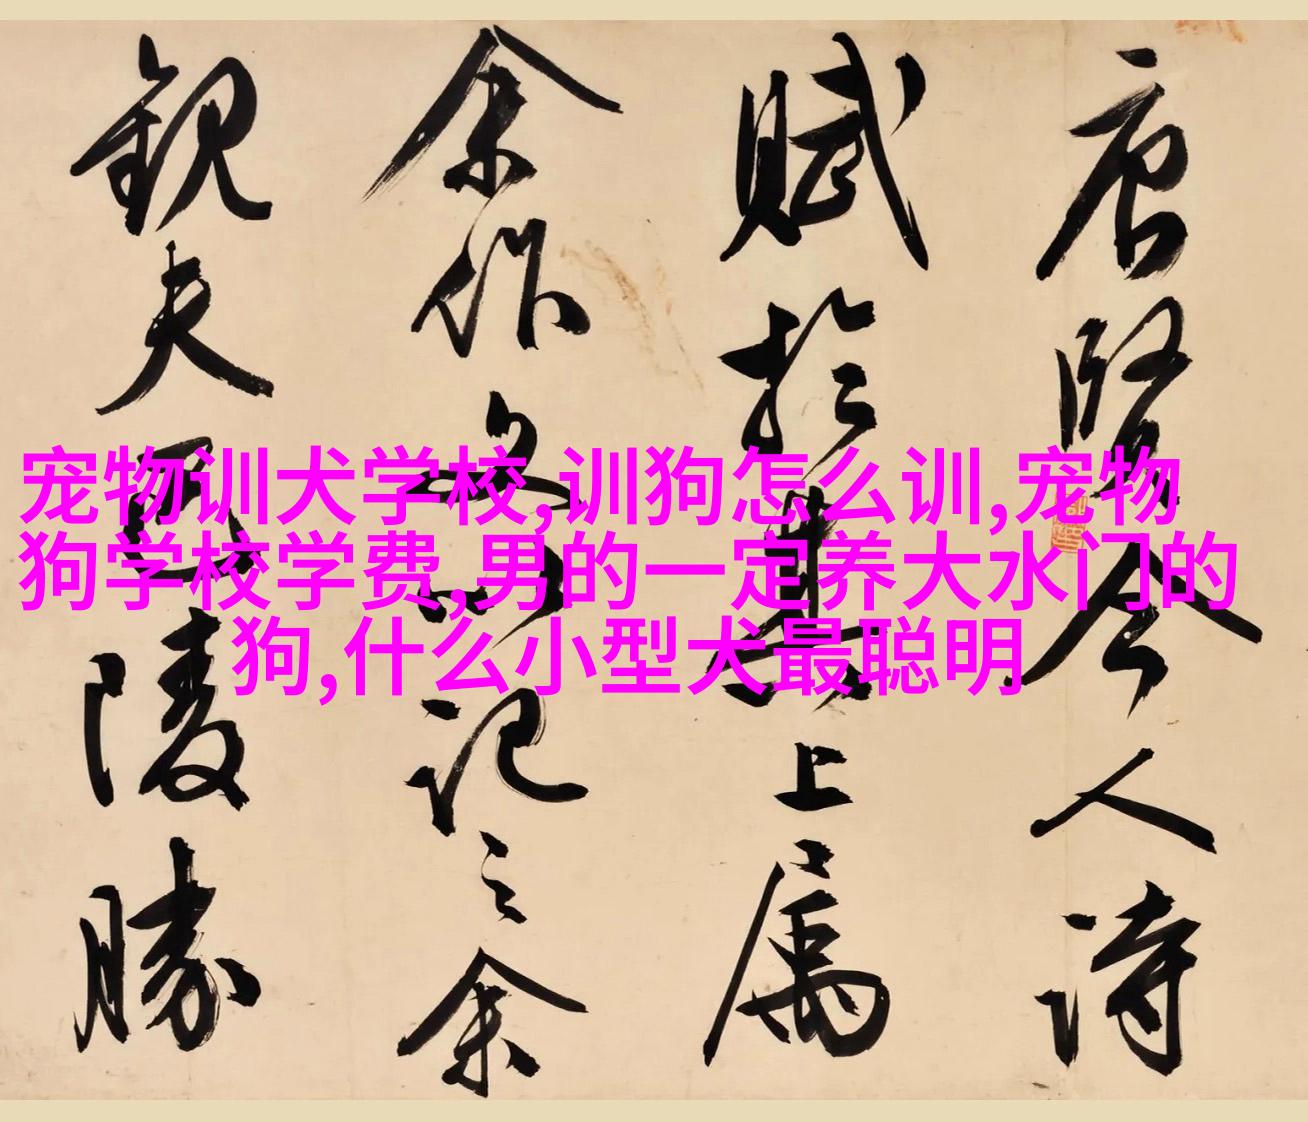 宠物训犬学校,训狗怎么训,宠物
狗学校学费,男的一定养大水门的
狗,什么小型犬最聪明
唐賢今人詩
賦於其上属
余作文以記之余
觀夫巴陵勝